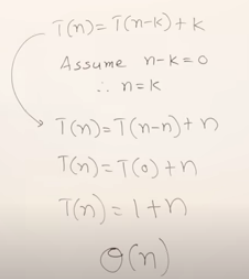 T(n)=T(n-k)+k
Assume n-k=0
∴ n=k
T(n)=T(n-n)+n
T(n)=T(0)+n
T(n)=1+n
Θ(n)